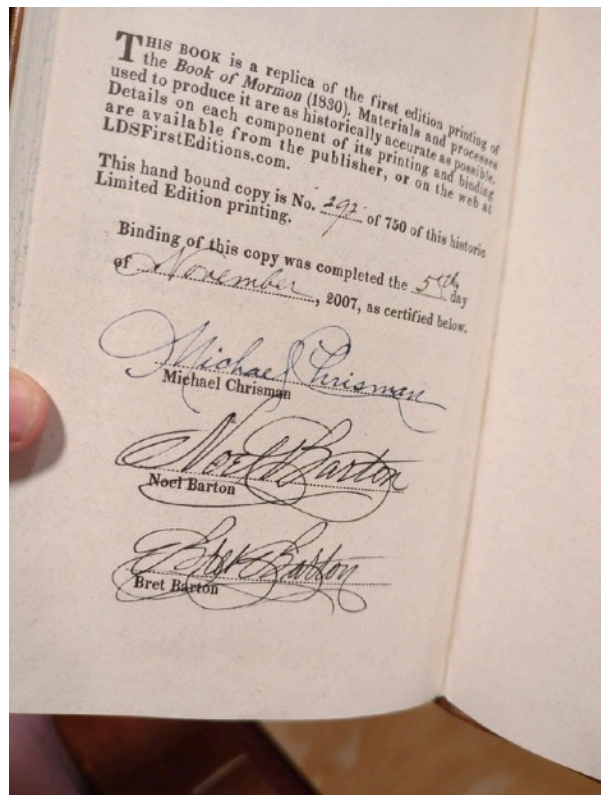 THIS BOOK is a replica of the first edition printing of
the Book of Mormon (1830). Materials and processes
used to produce it are as historically accurate as possible.
Details on each component of its printing and binding
are available from the publisher, or on the web at
LDSFirstEditions.com.
This hand bound copy is No. 292 of 750 of this historic
Limited Edition printing.
Binding of this copy was completed the 5th day
of November, 2007, as certified below.
Michael Chrisman
Michael Chrisman
Noel Barton
Noel Barton
Bret Barton
Bret Barton